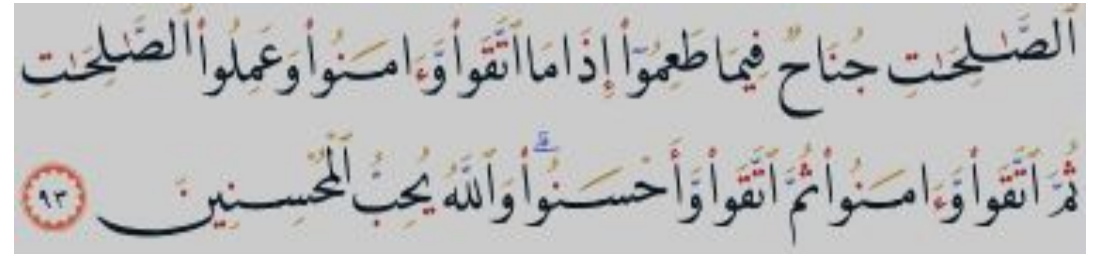 ٱلصَّـٰلِحَـٰتِ جُنَاحٌ فِيمَا طَعِمُوٓاْ إِذَا مَا ٱتَّقَواْ وَّءَامَنُواْ وَعَمِلُواْ ٱلصَّـٰلِحَـٰتِ
ثُمَّ ٱتَّقَواْ وَّءَامَنُواْ ثُمَّ ٱتَّقَواْ وَّأَحْسَنُواْ ۗ وَٱللَّهُ يُحِبُّ ٱلْمُحْسِنِينَ ٩٣